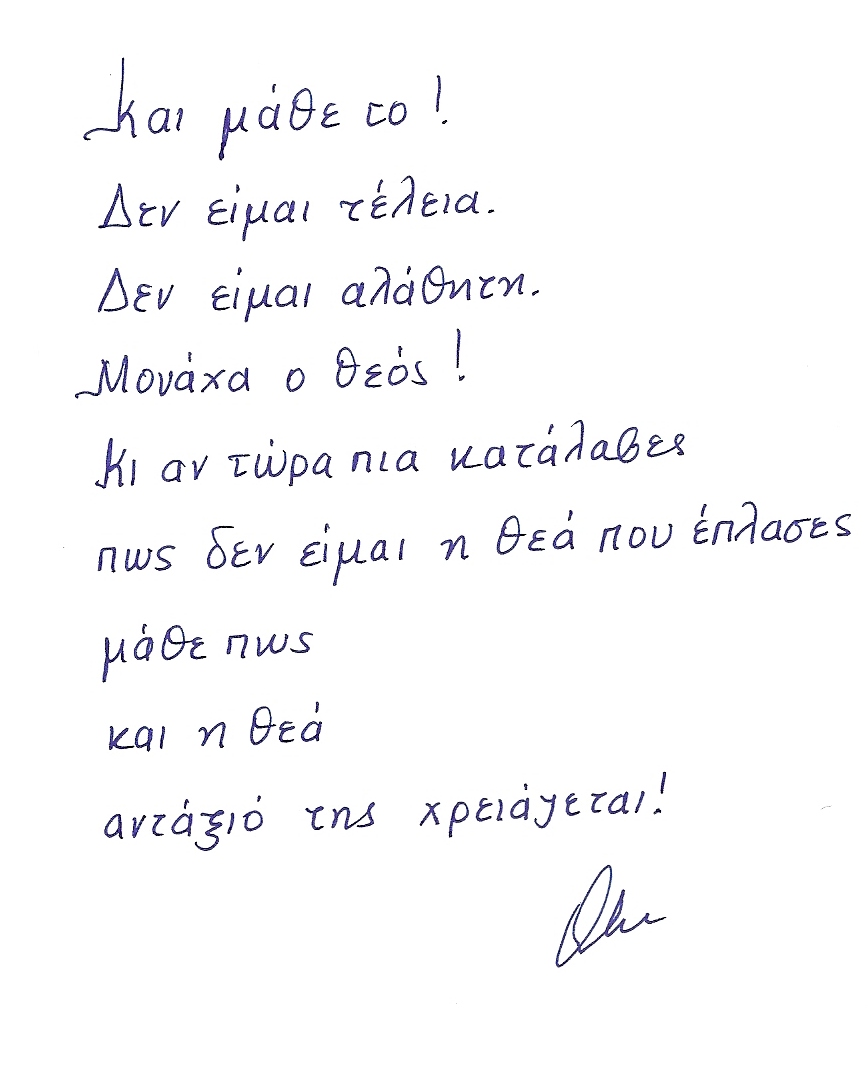 Και μάθε το!
Δεν είμαι τέλεια.
Δεν είμαι αλάθητη.
Μονάχα ο θεός!
Κι αν τώρα πια κατάλαβες
πως δεν είμαι η θεά που έπλασες
μάθε πως
και η θεά
αντάξιό της χρειάζεται!